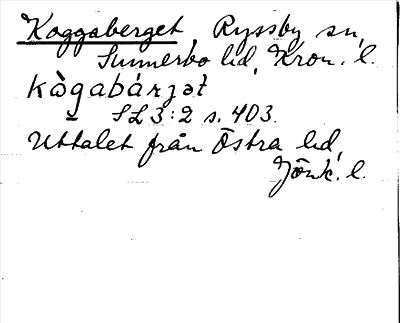 Koggaberget, Ryssby sn,
Sunnerbo hd, Kron. l.
kò̱gabárjət
SL 3:2 s. 403.
Uttalet från Östra hd,
Jönk. l.